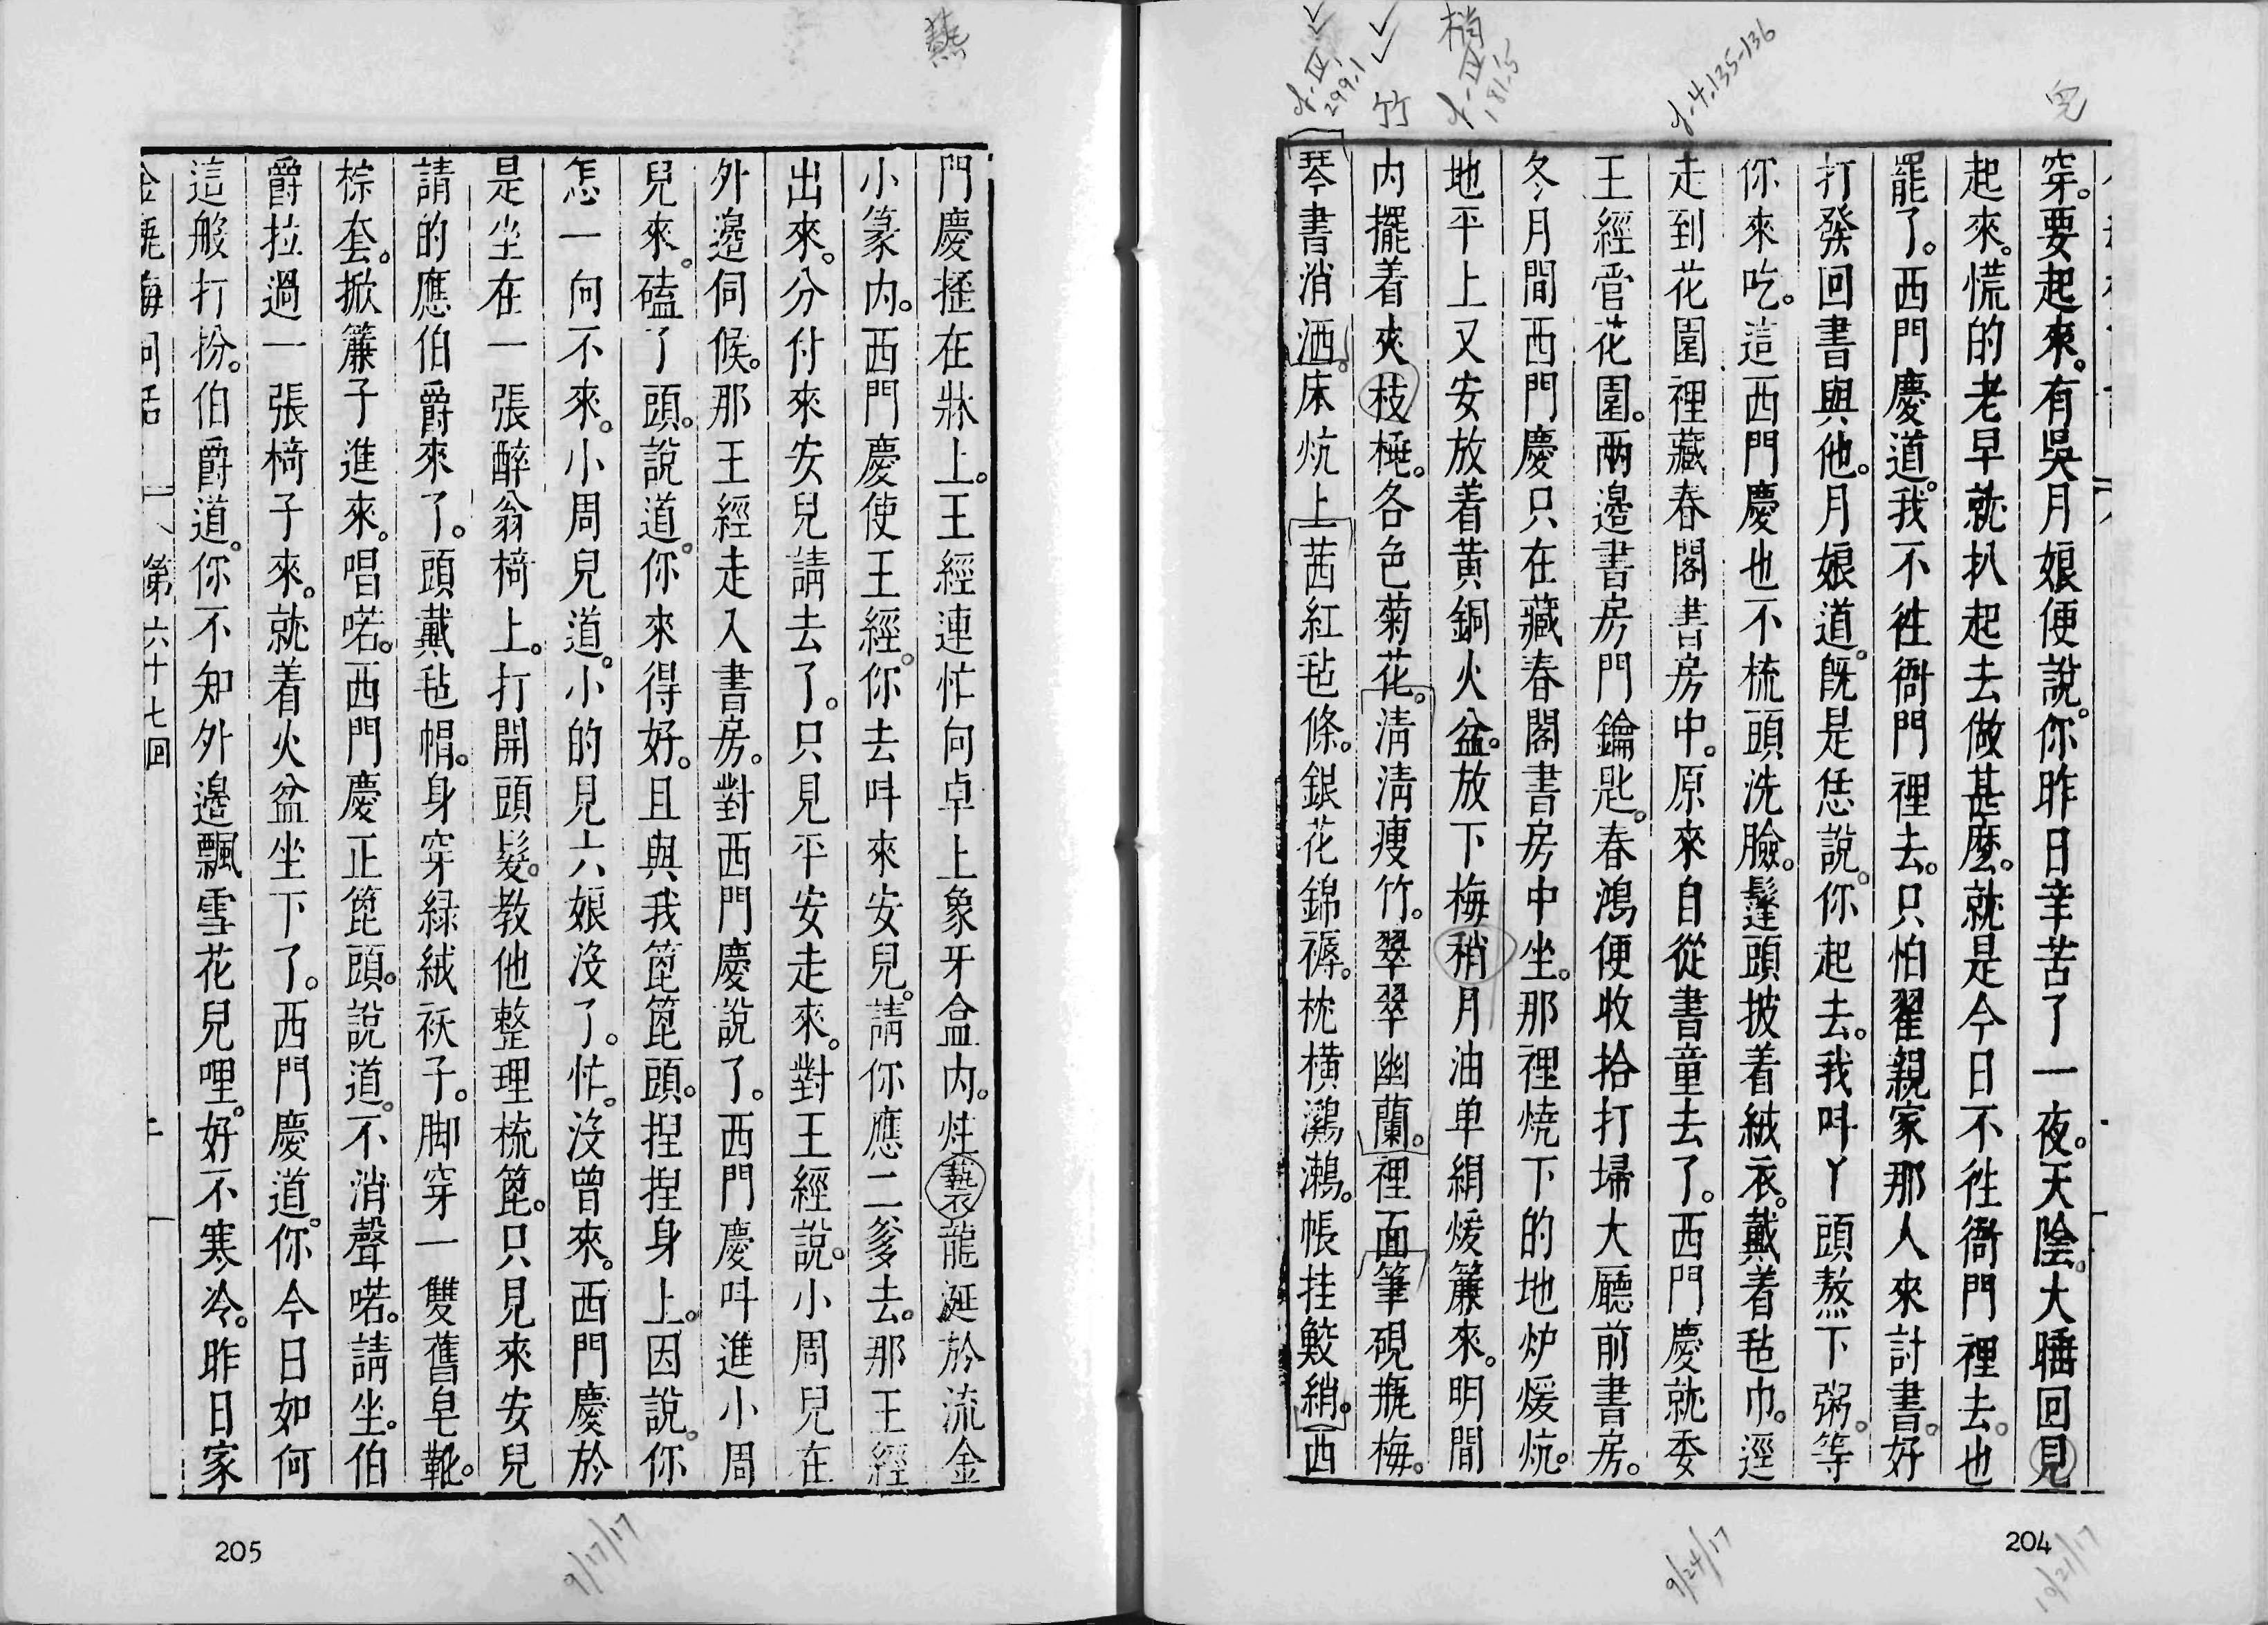 完
f-4.135-136
梢
f-IV,
181.5
竹
f-IV,
299.1
穿。要起來。有吳月娘便說。你昨日辛苦了一夜。天陰。大睡回見
起來。慌的老早就扒起去做甚麼。就是今日不徃衙門裡去。也
罷了。西門慶道。我不徃衙門裡去。只怕翟親家那人來討書。好
打發回書與他。月娘道。旣是恁說。你起去。我呌丫頭熬下粥。等
你來吃。這西門慶也不梳頭洗臉。鬔頭披着絨衣。戴着毡巾。逕
走到花園裡藏春閣書房中。原來自從書童去了。西門慶就委
王經菅花園。兩邉書房門鑰匙。春鴻便收拾打掃大廳前書房。
冬月間西門慶只在藏春閣書房中坐。那裡燒下的地炉煖炕。
地平上又安放着黄銅火盆。放下梅稍月油单絹煖簾來。明間
内擺着夾枝桃。各色菊花。清清瘦竹。翠翠幽蘭。裡面筆硯瓶梅。
琴書消洒。床炕上茜紅毡條。銀花錦褥。枕横鸂𪆟。帳挂鮫綃。西
204
10/21/17
9/24/17
爇
門慶㩻在牀上。王經連忙向卓上象牙盒内。炷爇龍涎於流金
小篆内。西門慶使王經。你去呌來安兒。請你應二爹去。那王經
出來。分付來安兒請去了。只見平安走來。對王經說。小周兒在
外邉伺候。那王經走入書房。對西門慶說了。西門慶呌進小周
兒來。磕了頭。說道。你來得好。且與我篦篦頭。捏捏身上。因說。你
怎一向不來。小周兒道。小的見六娘沒了。忙。沒曾來。西門慶於
是坐在一張醉翁椅上。打開頭髮。教他整理梳篦。只見來安兒
請的應伯爵來了。頭戴毡帽。身穿緑絨袄子。脚穿一雙舊皂靴。
棕套。掀簾子進來。唱喏。西門慶正篦頭。說道。不消聲喏。請坐。伯
爵拉過一張椅子來。就着火盆坐下了。西門慶道。你今日如何
這般打扮。伯爵道。你不知外邉飄雪花兒哩。好不寒冷。昨日家
金瓶梅詞話 第六十七回
205
9/17/17